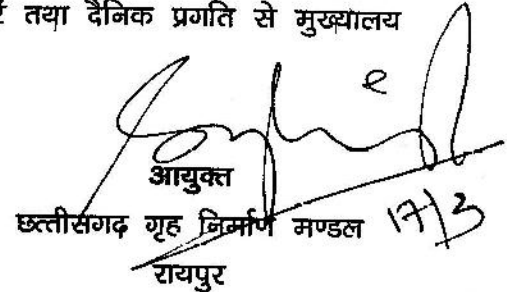 तथा दैनिक प्रगति से मुख्यालय
आयुक्त
छत्तीसगढ़ गृह निर्माण मण्डल 17/3
रायपुर